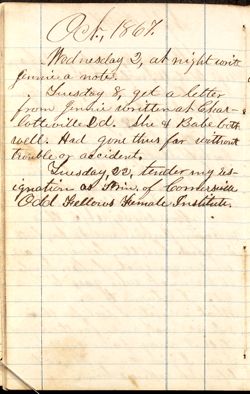 Oct, 1867.
Wednesday 2, at night write
Jennie a note.
Tuesday 8, get a letter
from Jennie written at Char-
lotteville Ed. She & Babe both
well. Had gone thus far without
trouble or accident.
Tuesday, 22, tender my res-
ignation as Prin. of Conersville
Odd Fellows Female Institute.